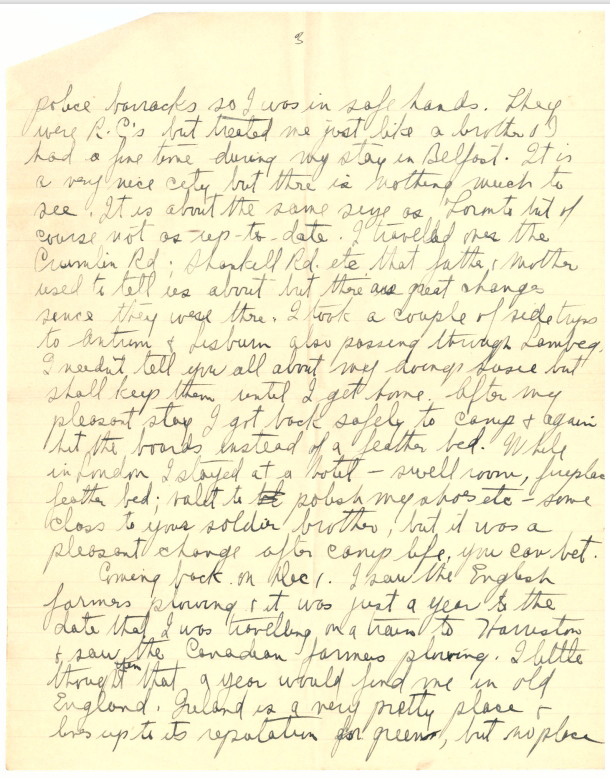 3
police barracks so I was in safe hands. They
were R.C's but treated me just like a brother & I
had a fine time during my stay in Belfast. It is
a very nice city but there is nothing much to
see. It is about the same size as Toronto but of
course not as up-to-date. I traveled over the
Crumlin Rd; Shankill Rd. etc that father & Mother
used to tell us about but there are great changes
since they were there. I took a couple of side trips
to Antrim & Lisburn also passing through Lambeg.
I needn't tell you all about my doings Susie but
shall keep them until I get home. After my
pleasant stay I got back safely to camp & again
hit the boards instead of a feather bed. While
in London I stayed at a hotel – swell room, fireplace
feather bed; valet to polish my shoes etc – some
class to your soldier brother, but it was a
pleasant change after camp life, you can bet.
Coming back on Dec 1. I saw the English
farmers plowing & it was just a year to the
date that I was travelling on a train to Harriston
& saw the Canadian farmers plowing. I little
thought then that a year would find me in old
England. Ireland is a very pretty place &
lives up to its reputation for greens, but no place